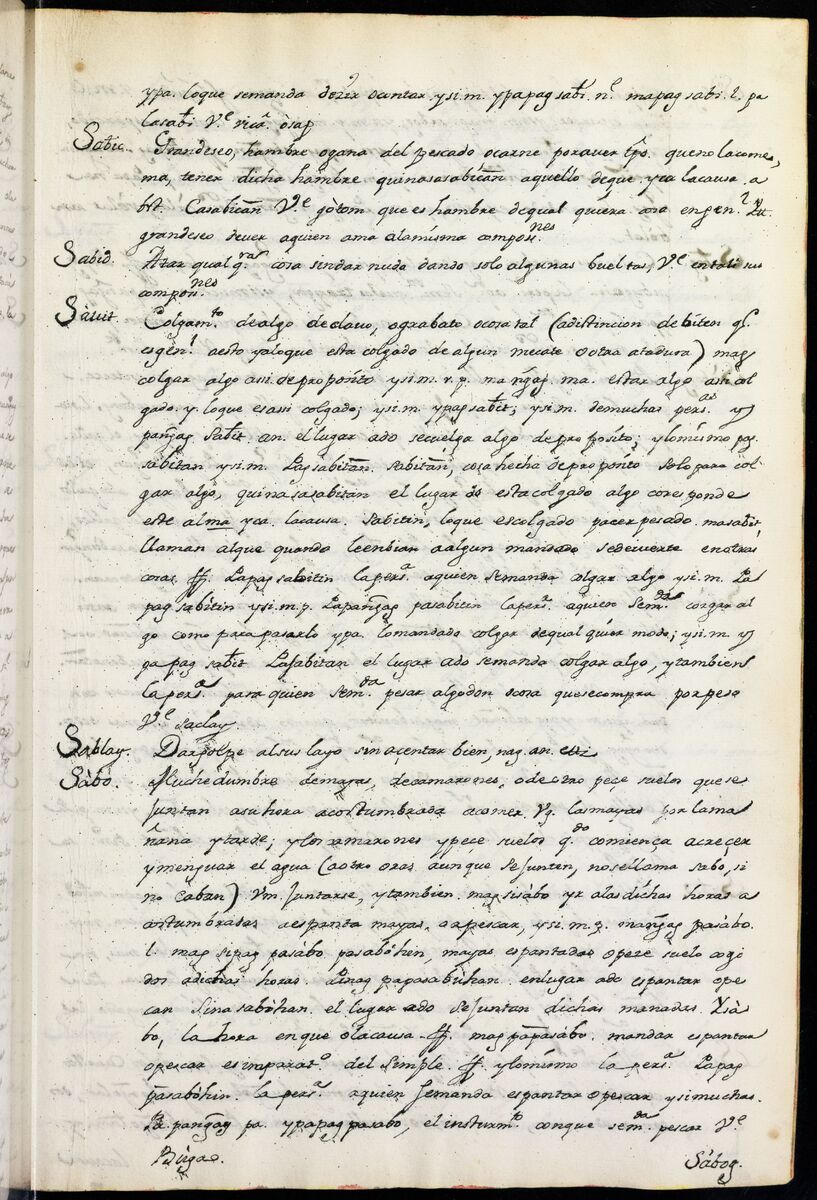 ypa. loque semanda dezir ocantar ysi.m. ypapag sabi. n.l mapag sabi. l. pa
lasabi V.e rica. òsap
Sabic. Grandeseo, hambre ogana del pescado ocarne poraver tpo. quenolacome,
ma, tener dicha hambre quinasasabican aquello deque. yca lacausa. a
bit. Casabican V.e gòtom que es hambre dequal quiera cosa engen.l Yu
grandeseo dever aquien ama alamisma composi.nes
Sabid. Atar qual q.ra cosa sindar nudo dando solo algunas bueltas, V.e entali sus
compon.nes
Sàuit. Colgam.to dealgo declavo, ograbato ocosa tal (adistincion debiten q.
esgen.l aesto yaloque esta colgado de algun mecate o otra atadura) mag
colgar algo asi deproposito ysi.m. y.p. mangag. ma. estar algo asi col
gado. y. loque esasi colgado; ysi.m. ypagsabit; ysi.m. demuchas pers.as y
pangag sabit. an. el lugar ado secuelga algo de proposito; ylomismo pag
sabitan ysi.m. Pagsabitan. sabitan, cosa hecha deproposito solo para col
gar algo, quinasasabitan el lugar do esta colgado algo coresponde
este al ma yca. lacausa. sabitin, loque escolgado pacer pesado. masabit,
llaman alque quando leenbian aalgun mandado sedevierte enotras
cosas. ff. Papag sabitin lapers.a aquien semanda colgar algo ysi.m. Pa
pag sabitin ysi.m.p. Papangag pasabitin lapers.a aquien sem.da colgar al
go como parapasarlo ypa. lomandado colgar dequal quier modo; ysi.m. y
papag sabit Pasabitan el lugar ado semanda colgar algo, ytambien
lapers.a para quien sem.da pesar algodon ocosa quesecompra porpeso
V.e saclay.
Sablay. Dar golpe alsuslayo sinaçentar bien, nag. an.
Sàbo. Muchedumbre demayas, decamarones, o deotro peçe suelos quese
Juntan asuhora acostumbrada acomer. Vg. lasmayas porlama
ñana ytarde; ylos camarones ypeçe suelos q.do comiença acreçer
ymenguar el agua (aotro oras aunque sejunten, nosellama sabo, si
no caban) Vm. Juntarse, ytambien. magsisabo yr alasdichas horas a
costumbradas aespanta mayas, o apescar, ysi.m.p. mangag pasàbo.
l. mag sipag pasàbo. pasabòhin, mayas espantadas opeze suelo cogi
dos adichas horas. Pinag pagasabòhan. enlugar ado espantar ope
can Sinasabòhan. el lugar ado sejuntan dichas manadas. Ysà
bo, la hora enque olacausa. ff. magpapasabo. mandar espantar
opescar es imparat.o del simple. ff. ylomismo la pers.a Papag
pasabòhin. la pers.a aquien semanda espantar opescar ysi muchas.
Pa pangag pa. ypapag pasabo, el insturm.to conque sem.da pescar V.e
Bùgao.
Sàbog.